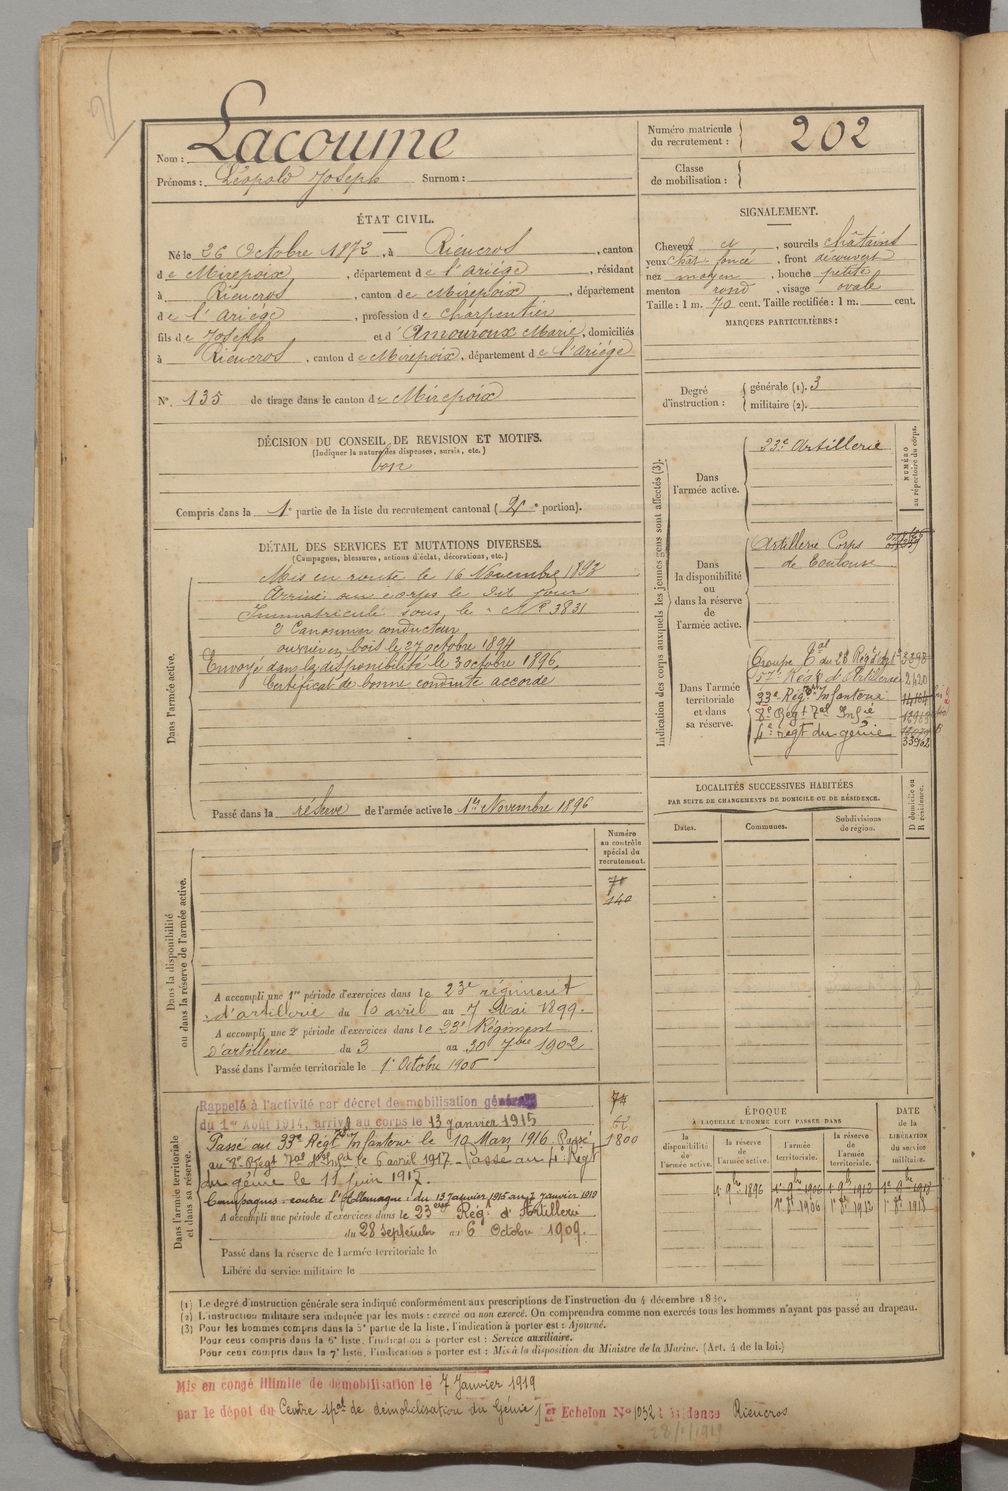 Nom : Lacoume
Prénoms : Léopold Joseph Surnom :
Numéro matricule du recrutement : 202
Classe de mobilisation :
ÉTAT CIVIL.
Né le 26 Octobre 1872, à Rieucros, canton
de Mirepoix, département de l'ariége, résidant
à Rieucros, canton de Mirepoix, département
de l'ariége, profession de charpentier
fils de Joseph et d'Amouroux Marie, domiciliés
à Rieucros, canton de Mirepoix, département de l'ariége
N° 135 de tirage dans le canton de Mirepoix
DÉCISION DU CONSEIL DE REVISION ET MOTIFS.
(Indiquer la nature des dispenses, sursis, etc.)
bon
Compris dans la 1e partie de la liste du recrutement cantonal (2e portion).
DÉTAIL DES SERVICES ET MUTATIONS DIVERSES.
(Campagnes, blessures, actions d'éclat, décorations, etc.)
Dans l'armée active.
Mis en route le 16 Novembre 1893
Arrivé au corps le dit jour
Immatriculé sous le N° 3831
2e Canonnier conducteur
ouvrier en bois le 27 octobre 1894
Envoyé dans la disponibilité le 3 octobre 1896.
Certificat de bonne conduite accordé
Passé dans la réserve de l'armée active le 1er Novembre 1896
Dans la disponibilité
ou dans la réserve de l'armée active.
Numéro
au contrôle
spécial du
recrutement.
140
A accompli une 1re période d'exercices dans le 23e régiment
d'artillerie du 10 avril au 7 Mai 1899.
A accompli une 2e période d'exercices dans le 23e Régiment
d'artillerie du 3 au 30 7bre 1902
Passé dans l'armée territoriale le 1er Octobre 1906
Dans l'armée territoriale
et dans sa réserve.
Rappelé à l'activité par décret de mobilisation générale
du 1er Août 1914, arrivé au corps le 13 janvier 1915
Passé au 33e Régt Infanterie le 19 Mars 1916. Passé
au 8e Régt Tal d'Infie le 6 avril 1917 - Passé au 4e Régt
du génie le 11 juin 1917.
Campagnes : contre l'Allemagne : du 13 Janvier 1915 au 7 Janvier 1919
1800
A accompli une période d'exercices dans le 23ème Régt d'Artillerie
du 28 Septembre au 6 Octobre 1909.
Passé dans la réserve de l'armée territoriale le
Libéré du service militaire le
SIGNALEMENT.
Cheveux et, sourcils châtains
yeux chat. foncé, front découvert
nez moyen, bouche petite
menton rond, visage ovale
Taille : 1 m. 70 cent. Taille rectifiée : 1 m. cent.
MARQUES PARTICULIÈRES :
Degré d'instruction :
générale (1). 3
militaire (2).
Indication des corps auxquels les jeunes gens sont affectés (3).
NUMÉRO
au répertoire du corps.
Dans
l'armée active.
23e Artillerie
Dans
la disponibilité
ou
dans la réserve
de
l'armée active.
Artillerie Corps
de Toulouse
Dans l'armée
territoriale
et dans
sa réserve.
Groupe Tal du 23 Régt
57e Régt d'Artillerie 2420
33e Régt Infanterie
8e Régt Tal Infie
4e régt du génie
33902
LOCALITÉS SUCCESSIVES HABITÉES
PAR SUITE DE CHANGEMENTS DE DOMICILE OU DE RÉSIDENCE.
Dates. Communes. Subdivisions de région. D domicile ou R résidence.
ÉPOQUE
À LAQUELLE L'HOMME DOIT PASSER DANS
DATE
de la
LIBÉRATION
du service
militaire.
la disponibilité de l'armée active. la réserve de l'armée active. l'armée territoriale. la réserve de l'armée territoriale.
1er 9bre 1896 1er 9bre 1906 1er 9bre 1912 1er 9bre 1918
1er 8bre 1906 1er 8bre 1912 1er 8bre 1918
(1) Le degré d'instruction générale sera indiqué conformément aux prescriptions de l'Instruction du 4 décembre 1889.
(2) L'instruction militaire sera indiquée par les mots : exercé ou non exercé. On comprendra comme non exercés tous les hommes n'ayant pas passé au drapeau.
(3) Pour les hommes compris dans la 5e partie de la liste, l'indication à porter est : Ajourné.
Pour ceux compris dans la 6e liste, l'indication à porter est : Service auxiliaire.
Pour ceux compris dans la 7e liste, l'indication à porter est : Mis à la disposition du Ministre de la Marine. (Art. 4 de la loi.)
Mis en congé illimité de démobilisation le 7 Janvier 1919
par le dépot du Centre de démobilisation du Génie 1er Echelon N° 1032 résidence Rieucros